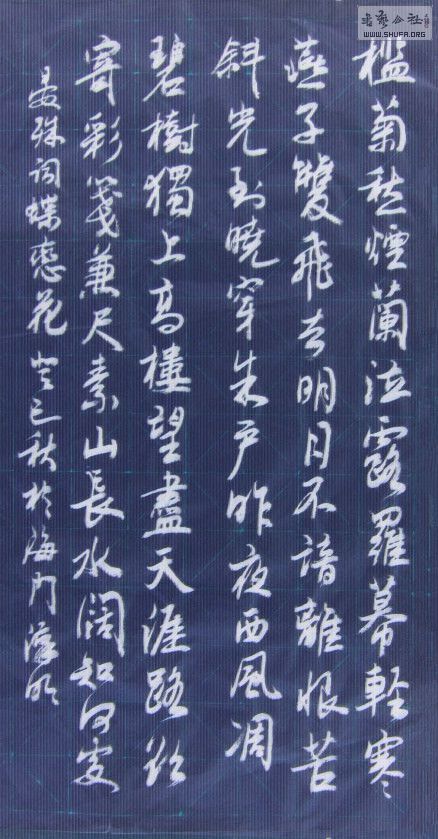 檻菊愁煙蘭泣露羅幕輕寒
燕子雙飛去明月不諳離恨苦
斜光到曉穿朱户昨夜西風凋
碧樹獨上高樓望盡天涯路欲
寄彩箋兼尺素山長水阔知何處
晏殊词蝶戀花 癸巳秋於海門
书艺公社
WWW.SHUFA.ORG